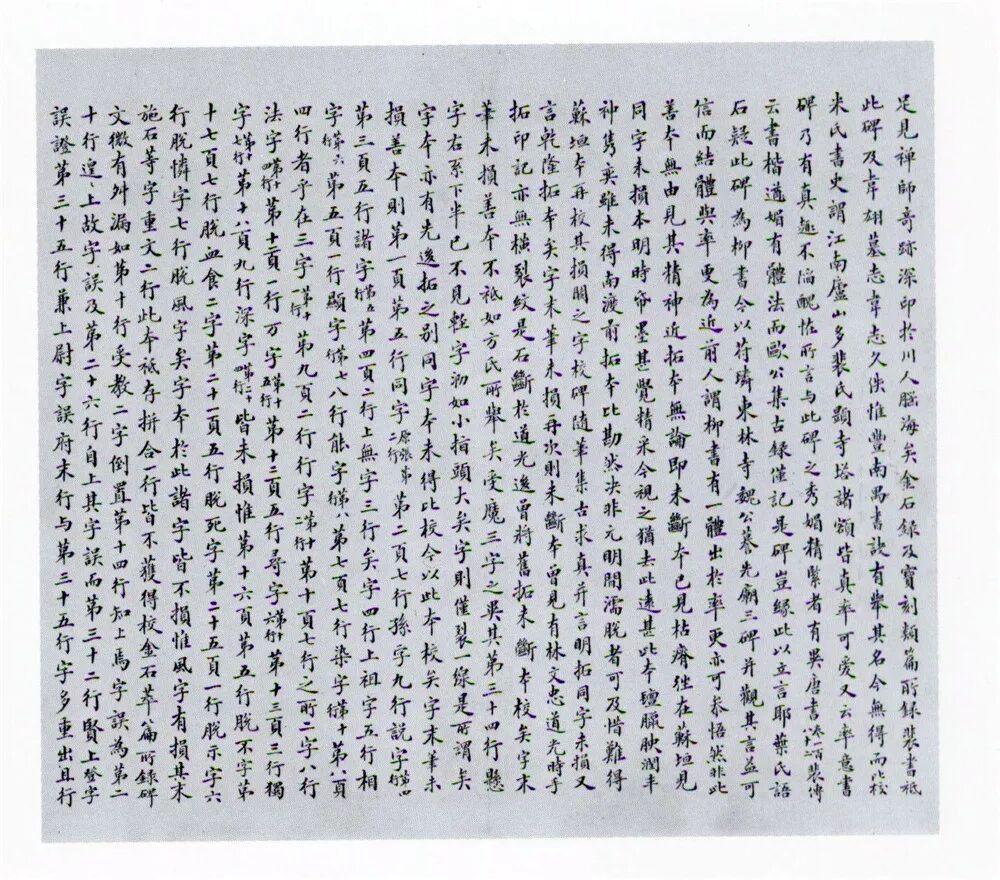 足見禪師奇跡深印於川人腦海矣金石錄及寶刻類篇所錄裴書祗
此碑及韋翃墓志韋志久佚惟豐南禺書訣有舉其名今無得而比校
米氏書史謂江南廬山多裴氏題寺塔諸額皆真率可愛又云率意書
碑乃有真趣不陷醜怪所言與此碑之秀媚精緊者有異唐書裴傳
云書楷遒媚有體法而歐公集古錄僅記是碑豈緣此以立言耶葉氏語
石疑此碑為柳書今以符璘東林寺魏公暮先廟三碑并觀其言益可
信而結體與率更為近前人謂柳書有一體出於率更亦可恭悟然非此
善本無由見其精神近拓本無論即未斷本已見枯瘠往在蘇垣見
同字未損本明時帘墨甚覺精采今視之猶去此遠甚此本膻臘腴潤丰
神雋奕雖未得南渡前拓本比勘然決非元明間濡脫者可及惜難得
蘇垣本再校其損闕之字校碑隨筆集古求真并言明拓同字未損又
言乾隆拓本矣字末筆未損再次則未斷本曾見有林文忠道光時手
拓印記亦無橫裂紋是石斷於道光後曾將舊拓未斷本校矣字末
筆未損善本不祗如方氏所舉矣受魔三字之異其第三十四行懸
字右系下半已不見輕字初如小指頭大矣字則僅裂一線是所謂矣
字本亦有先後拓之别同字本未得比校今以此本校矣字末筆未
損善本則第一頁第五行同字原張第二行第二頁七行孫字九行說字第四行
第三頁五行諸字第五行第四頁二行上無字三行矣字四行上祖字五行相
字第六行第五頁一行顯字第七行八行能字第八行第七頁七行染字第十行第八頁
四行者乎在三字第十一行第九頁二行行字第十二行第十頁七行之所二字八行
法字第十四行第十一頁一行万字第十五行第十二頁五行尋字第十六行第十三頁三行獨
字第十七行第十八頁九行深字第二十四行皆未損惟第十六頁第五行脫不字第
十七頁七行脫血食二字第二十一頁五行脫死字第二十五頁一行脫示字六
行脫憐字七行脫風字矣字本於此諸字皆不損惟風字有損其末
施石等字重文二行此本祗存拼合一行皆不獲得校金石萃編所錄碑
文微有舛漏如第十行受教二字倒置第十四行知上馬字誤為第二
十行遑遑上故字誤及第二十六行自上其字誤而第三十二行賢上登字
誤證第三十五行兼上尉字誤府末行与第三十五行字多重出且行